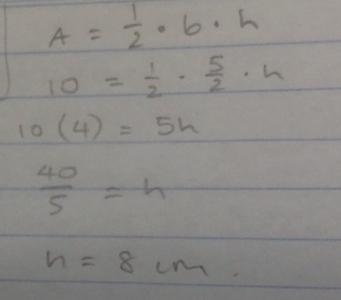 A = 1/2 · b · h
10 = 1/2 · 5/2 · h
10 (4) = 5h
40/5 = h
h = 8 cm.